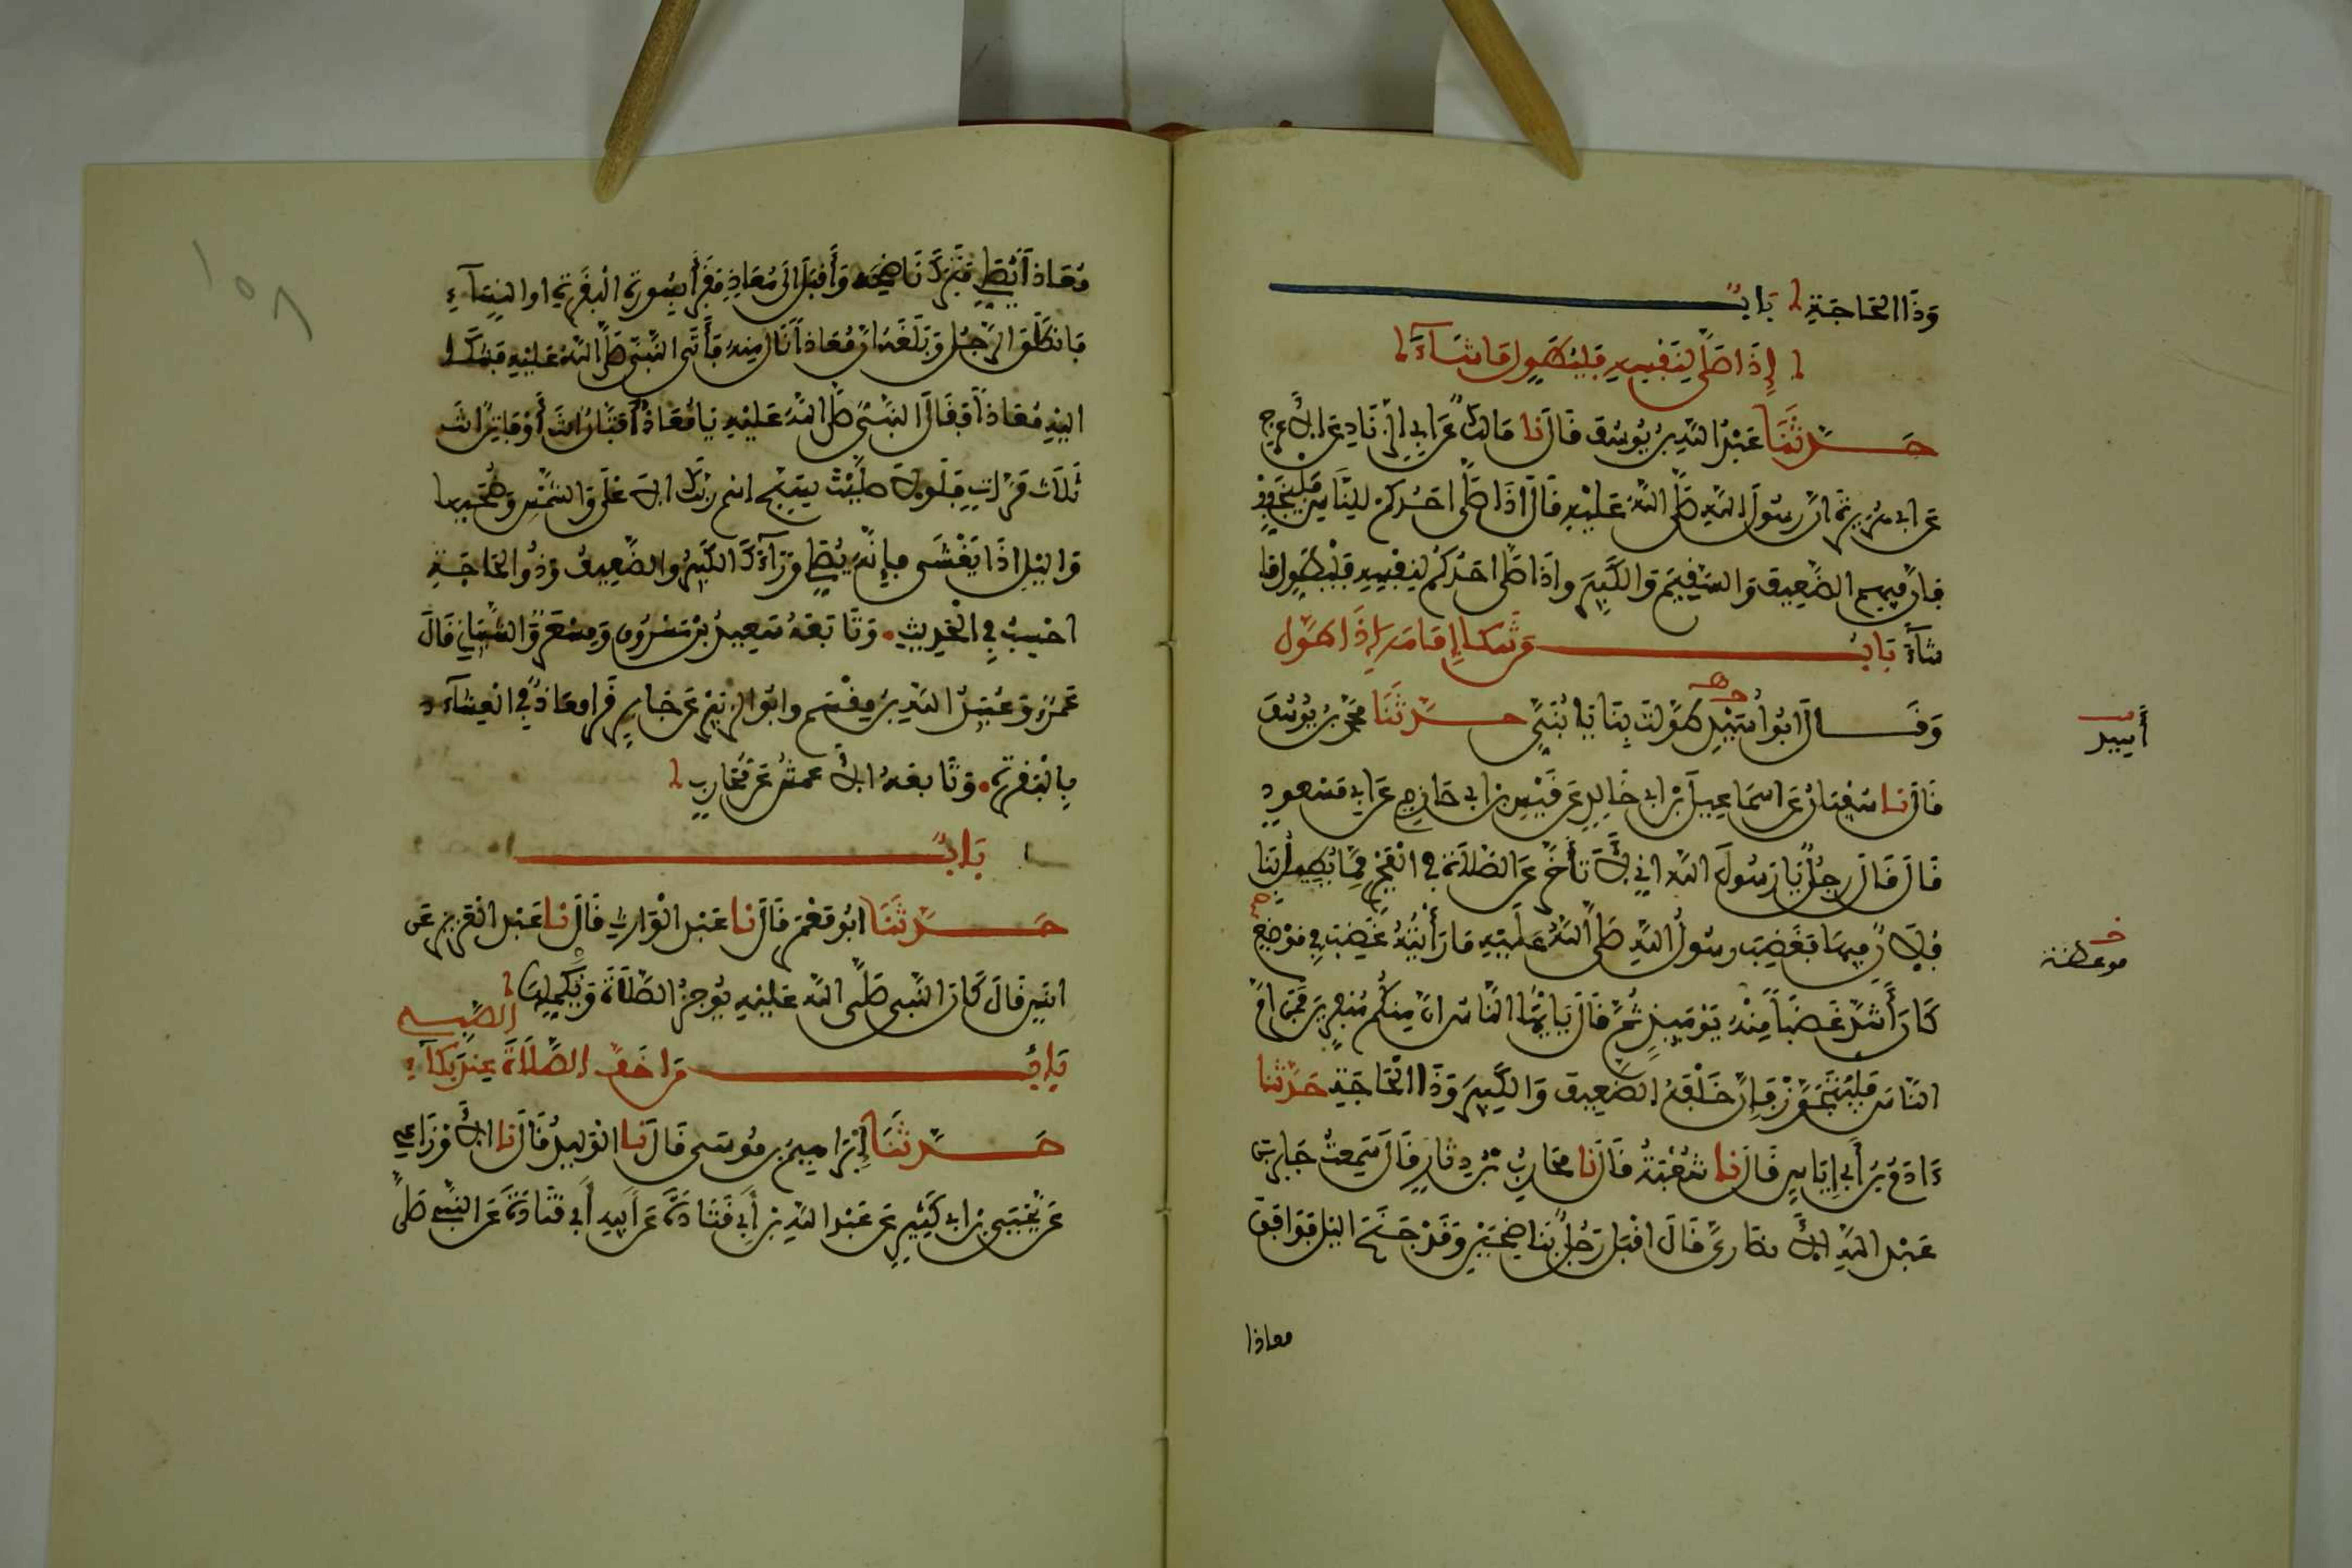 وَذَا الحَاجَةِ بَابٌ
إِذَا صَلَّى لِنَفْسِهِ فَلْيُطَوِّل مَا شَآءَ
حَدَّثَنَا عَبْدُ اللَّهِ بنُ يُوسُفَ قَالَ نا مَالِكٌ عَن أَبِي الزِّنَادِ عَنِ الأَعْرَجِ
عَن أبي هريرة أنَّ رسُولَ اللَّهِ صَلَّى اللَّهُ عَلَيْهِ قَالَ إذَا صَلَّى احَدُكُمْ لِلنَّاسِ فَلْيُخَفِّفْ
فإنَّ فيهم الضَّعِيفَ وَالسَّقِيمَ وَالكَبِيرَ وإذَا صَلَّى احَدُكُمْ لِنَفْسِهِ فَلْيُطَوِّل مَا
شَآءَ بَابُ مَن شَكَا إِمَامَهُ إِذَا طَوَّل
وَقَالَ أبُوا أُسَيْدٍ طَوَّلْتَ بِنَا يَا بُنَيِّ حَدَّثَنَا مُحَمَّد بنُ يُوسُفَ
قَالَ نا سُفْيَانُ عَن اسمَاعِيلَ بْنِ ابي خَالِدٍ عَن قَيْسِ بن ابي حَازِمٍ عَن ابِي مَسْعودٍ
قَالَ قَالَ رجُلٌ يَا رَسُولَ اللَّه إني لَأَتَأَخَّرُ عَنِ الصَّلَاةِ في الْفَجْرِ مِمَّا يُطِيلُ بِنَا
فلان فِيهَا فَغَضِبَ رسُولُ اللَّهِ صَلَّى اللَّهُ عَلَيْهِ مَا رَأَيْتُهُ غَضِبَ فِي مَوْضِعٍ
كَانَ أَشَدَّ غَضَبًا مِنْهُ يَوْمَئِذٍ ثُمَّ قَالَ يَا أَيُّهَا النَّاسُ انَّ مِنكُم مُنَفِّرِينَ فَمَن أمَّ
النَّاسَ فَلْيَتَجَوَّزْ فَإنَّ خَلْفَهُ الضَّعِيفَ وَالكَبِيرَ وَذَا الْحَاجَةِ حَدَّثنا
ءَادَمُ بنُ أَبِي إيَاسٍ قَالَ نا شُعْبَةُ قَالَ نَا مُحَارِبُ بْنُ دِثَارٍ قَالَ سَمِعْتُ جَابِرَ بنَ
عَبْدِ اللَّهِ الأنصَارِيَّ قَالَ اقْبَلَ رَجُلٌ بِنَاضِحَيْنِ وَقَدْ جَنَحَ اليْل فَوَافَقَ
معاذا
أسيد
موعظة
مُعَاذاً يُصَلِّي فَتَرَكَ نَاضِحَه وَأَقْبَلَ الَى مُعَاذٍ فَقَرَأ بِسُورةِ الْبَقَرَةِ اوالنِّسَآءِ
فَانطَلَقَ الرَّجُل وَبَلَغَهُ انَّ مُعَاذاً نَالَ مِنهُ فَأَتَى النَّبيَّ صَلَّى اللَّهُ عَلَيْهِ فشكا
اليْهِ مُعَاذاً فَقَالَ النَّبيُّ صَلَّى اللَّهُ عَلَيْهِ يَا مُعَاذُ أَفَتَّانٌ انتَ أَوْ فَاتِنٌ انتَ
ثَلَاثَ مَرَّاتٍ فَلَوْلَا صَلَّيْتَ بسَبِّح اسْم رَبِّكَ الاعْلَى وَالشَّمْسِ وَضُحَيهَا
وَاليْل اذَا يَغْشَى فَإِنَّهُ يُصَلِّي وَرَآءَكَ الكَبِيرُ والضَّعِيفُ وَذُوا الحَاجَةِ
احْسِبُ فِي الْحَدِيثِ وَتَابَعَهُ سَعِيدُ بْنُ مَسْرُوقٍ وَمِسْعَرٌ وَالشَّيْبَانِي قَالَ
عَمْرٌو وَعُبَيْدُ اللَّهِ بنُ مِقْسَم وابُو الزبَيْرِ عَن جَابِرٍ قَرَأ معَاذٌ في الْعِشَآءِ
بِالْبَقَرةِ وَتَابعهُ الأَعمشُ عَن مُحَارِبٍ
بَابٌ
حَدَّثَنَا ابُو مَعْمَرٍ قَالَ نا عَبْدُ الْوَارِثِ قَالَ نا عَبْدُ الْعَزِيزِ عَن
انَسٍ قَالَ كَانَ النَّبي صَلَّى اللَّه عَلَيْهِ يُوجِزُ الصَّلَاةَ وَيُكْمِلُهَا
بَابُ مَن اخَفَّ الصَّلَاةَ عِندَ بُكَآءِ الصَّبِي
حَدَّثَنَا إِبْرَاهِيمُ بنُ مُوسَى قَالَ نَا الْوَلِيدُ قَالَ نا الأَوْزَاعِي
عَن يَحْيَى بن ابي كَثِيرٍ عَن عَبْدِ اللَّهِ بنِ أَبِي قَتَادَةَ عَن أَبِيهِ أَبِي قَتَادَةَ عَنِ النَّبي صَلَّى